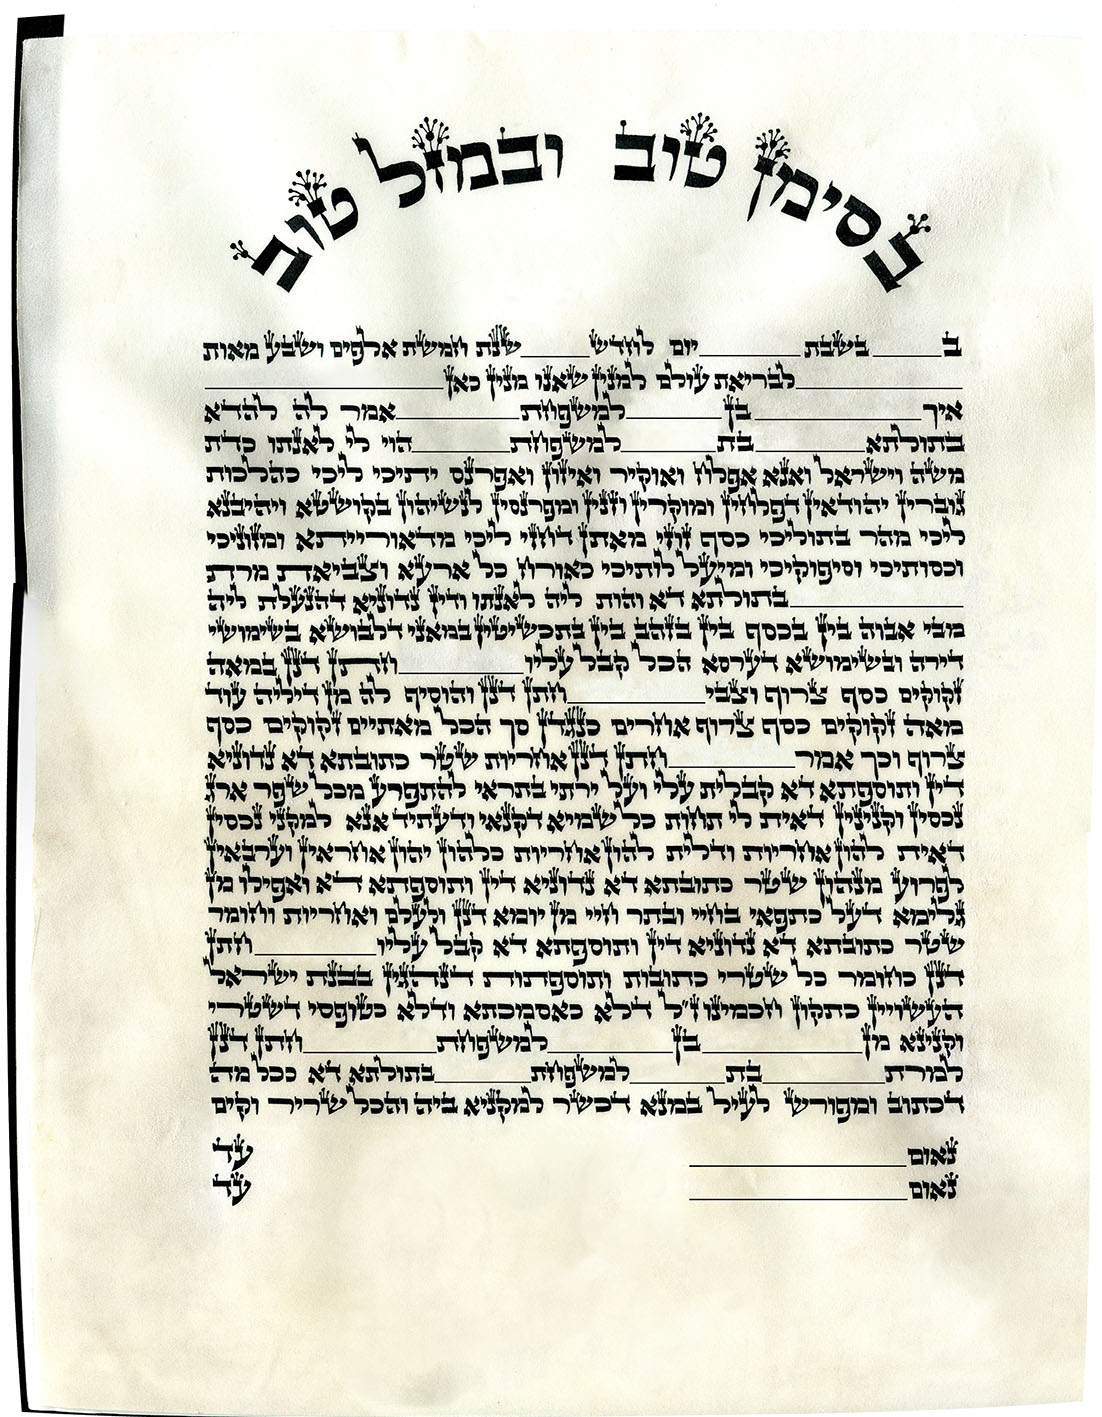 בסימן טוב ובמזל טוב
ב____ בשבת ____ יום לחדש ____ שנת חמשת אלפים ושבע מאות
____ לבריאת עולם למנין שאנו מנין כאן ____
איך ____ בן ____ למשפחת ____ אמר לה להדא
בתולתא ____ בת ____ למשפחת ____ הוי לי לאנתו כדת
משה וישראל ואנא אפלח ואוקיר ואיזון ואפרנס יתיכי ליכי כהלכות
גוברין יהודאין דפלחין ומוקרין וזנין ומפרנסין לנשיהון בקושטא ויהיבנא
ליכי מהר בתוליכי כסף זוזי מאתן דחזי ליכי מדאורייתא ומזוניכי
וכסותיכי וסיפוקיכי ומיעל לותיכי כאורח כל ארעא וצביאת מרת
____ בתולתא דא והות ליה לאנתו ודין נדוניא דהנעלת ליה
מבי אבוה בין בכסף בין בזהב בין בתכשיטין במאני דלבושא בשימושי
דירה ובשימושא דערסא הכל קבל עליו ____ חתן דנן במאה
זקוקים כסף צרוף וצבי ____ חתן דנן והוסיף לה מן דיליה עוד
מאה זקוקים כסף צרוף אחרים כנגדן סך הכל מאתיים זקוקים כסף
צרוף וכך אמר ____ חתן דנן אחריות שטר כתובתא דא נדוניא
דין ותוספתא דא קבלית עלי ועל ירתי בתראי להתפרע מכל שפר ארג
נכסין וקנינין דאית לי תחות כל שמייא דקנאי ודעתיד אנא למקני נכסין
דאית להון אחריות ודלית להון אחריות כלהון יהון אחראין וערבאין
לפרוע מנהון שטר כתובתא דא נדוניא דין ותוספתא דא ואפילו מן
גלימא דעל כתפאי בחיי ובתר חיי מן יומא דנן ולעלם ואחריות וחומר
שטר כתובתא דא נדוניא דין ותוספתא דא קבל עליו ____ חתן
דנן כחומר כל שטרי כתובות ותוספתות דנהגין בבנת ישראל
העשויין כתקון חכמינו ז״ל דלא כאסמכתא ודלא כטופסי דשטרי
וקנינא מן ____ בן ____ למשפחת ____ חתן דנן
למרת ____ בת ____ למשפחת ____ בתולתא דא ככל מה
דכתוב ומפורש לעיל במנא דכשר למקניא ביה והכל שריר וקים
נאום ____ עד
נאום ____ עד